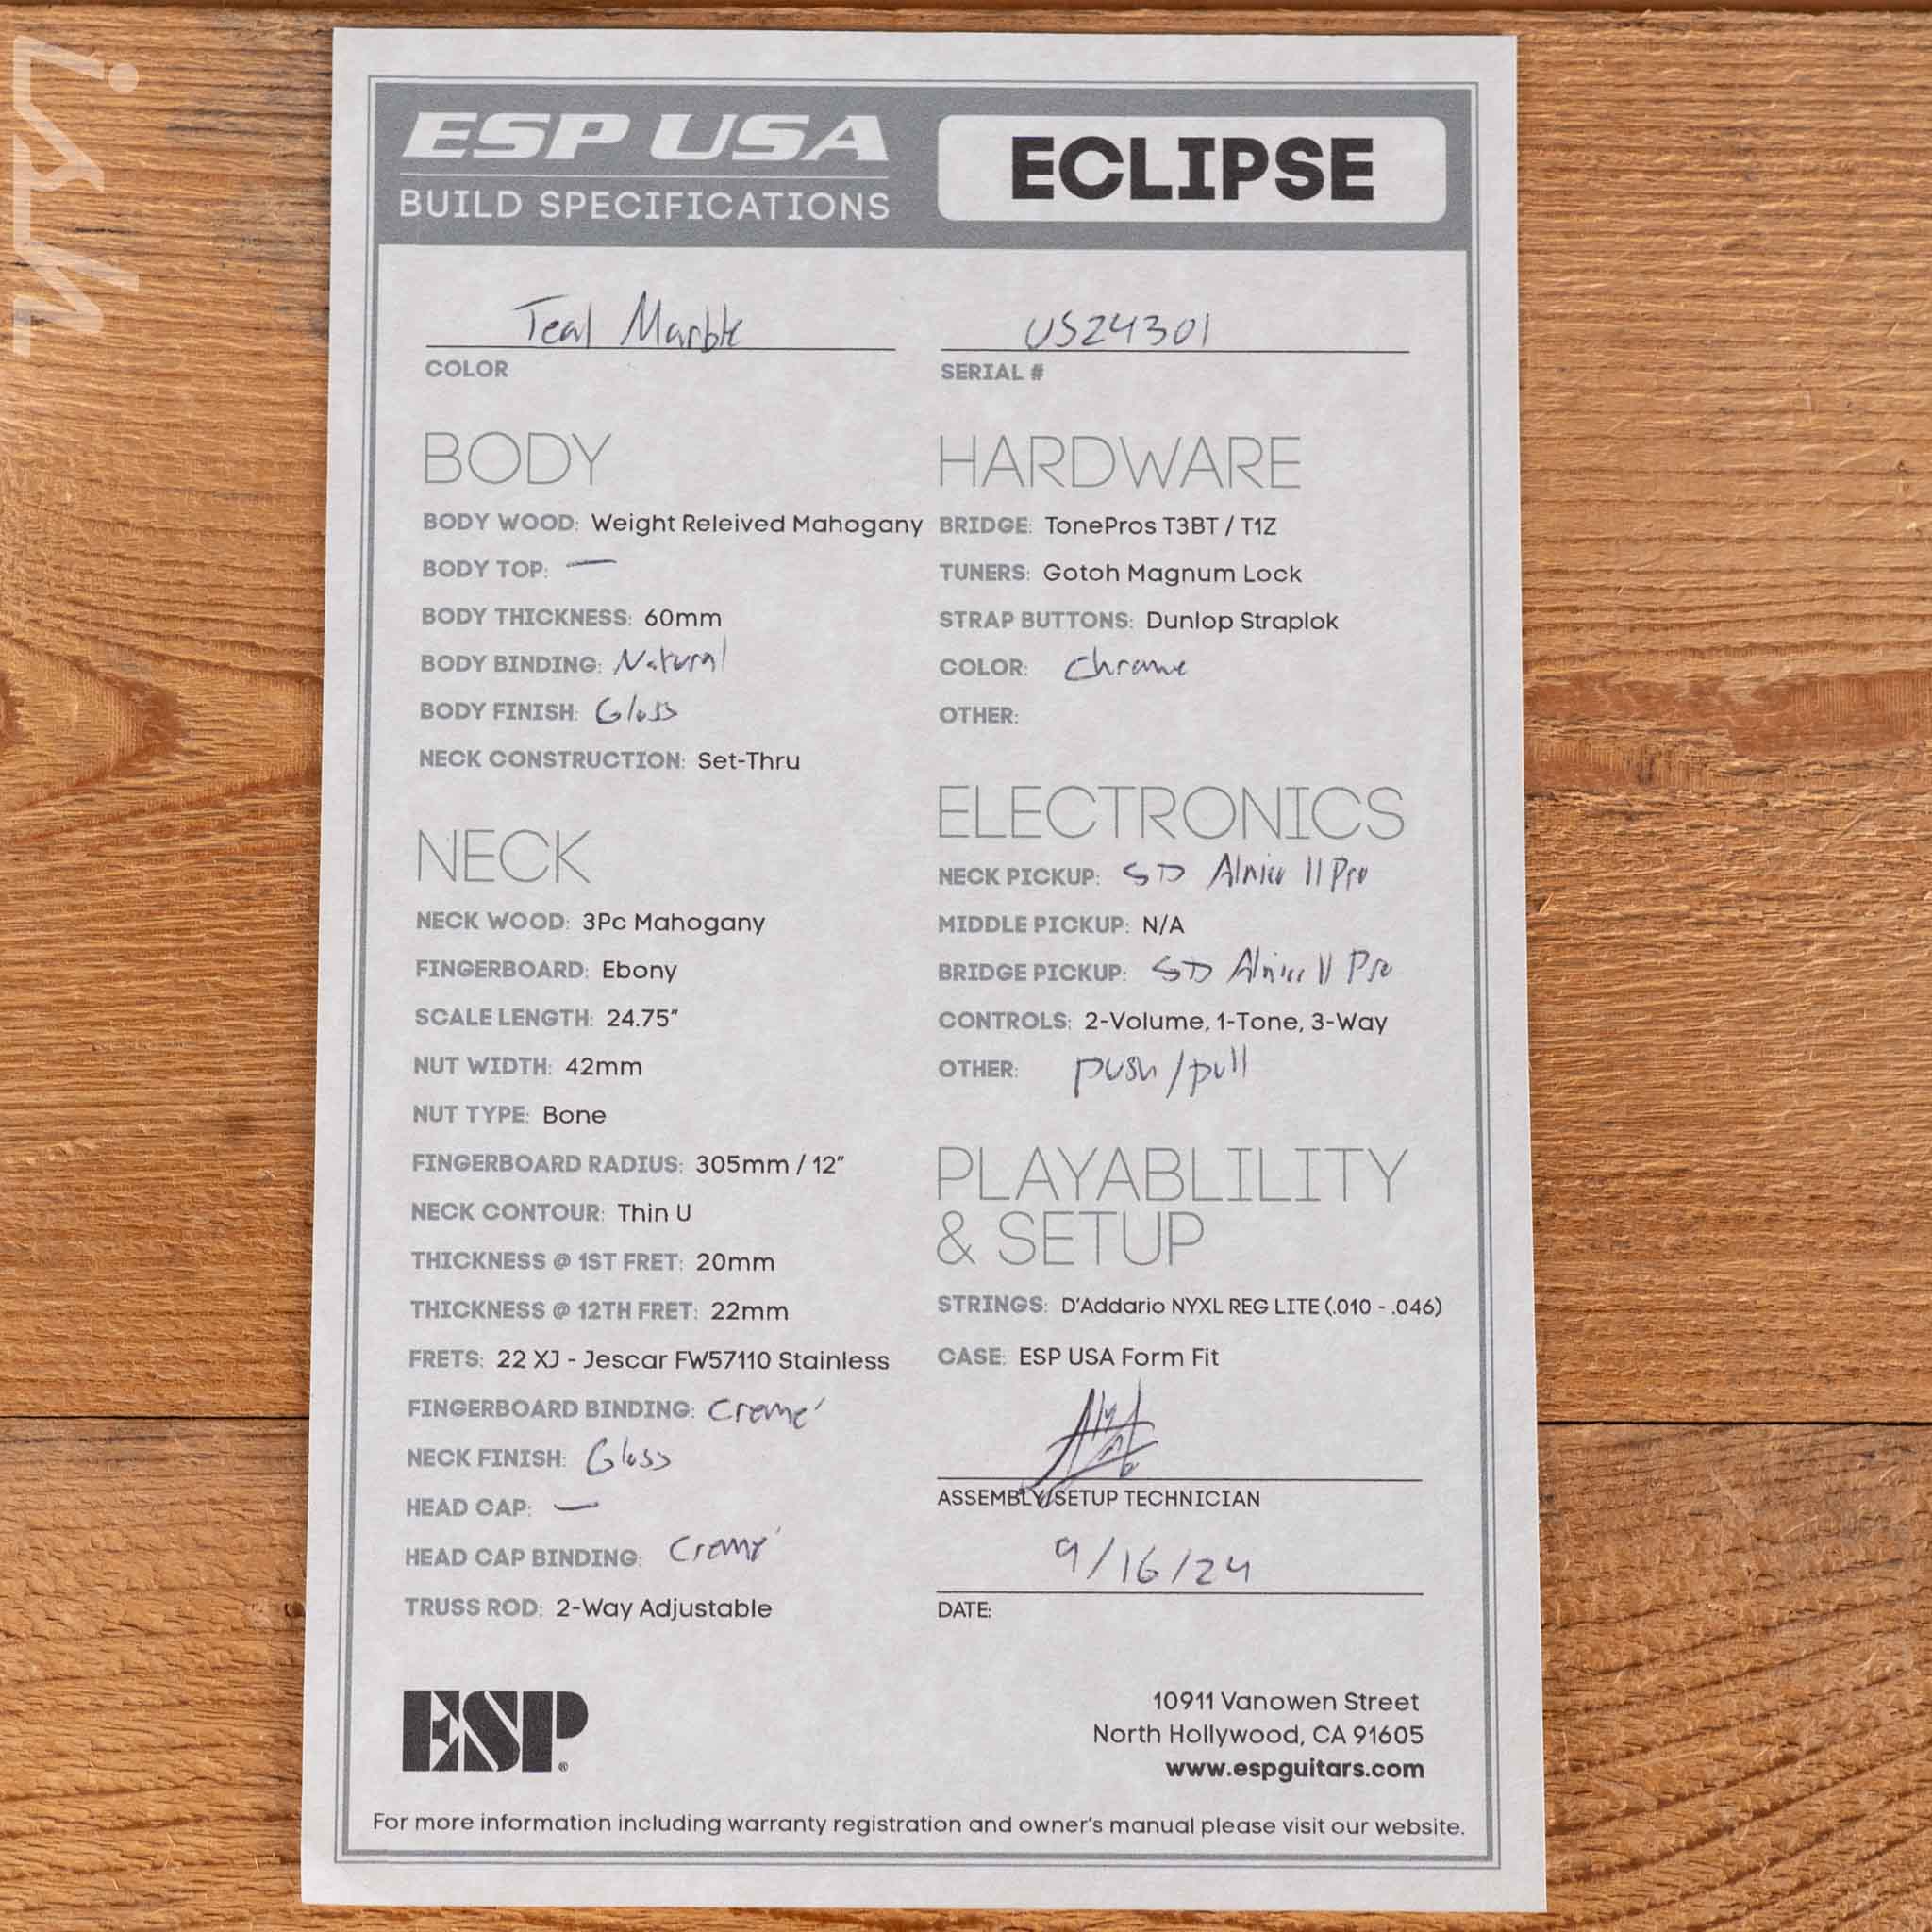 ESP USA
BUILD SPECIFICATIONS
ECLIPSE
Teal Marble
COLOR
US24301
SERIAL #
BODY
BODY WOOD: Weight Releived Mahogany
BODY TOP: —
BODY THICKNESS: 60mm
BODY BINDING: Natural
BODY FINISH: Gloss
NECK CONSTRUCTION: Set-Thru
NECK
NECK WOOD: 3Pc Mahogany
FINGERBOARD: Ebony
SCALE LENGTH: 24.75"
NUT WIDTH: 42mm
NUT TYPE: Bone
FINGERBOARD RADIUS: 305mm / 12"
NECK CONTOUR: Thin U
THICKNESS @ 1ST FRET: 20mm
THICKNESS @ 12TH FRET: 22mm
FRETS: 22 XJ - Jescar FW57110 Stainless
FINGERBOARD BINDING: Cremé
NECK FINISH: Gloss
HEAD CAP: —
HEAD CAP BINDING: Cremé
TRUSS ROD: 2-Way Adjustable
HARDWARE
BRIDGE: TonePros T3BT / T1Z
TUNERS: Gotoh Magnum Lock
STRAP BUTTONS: Dunlop Straplok
COLOR: Chrome
OTHER:
ELECTRONICS
NECK PICKUP: SD Alnico II Pro
MIDDLE PICKUP: N/A
BRIDGE PICKUP: SD Alnico II Pro
CONTROLS: 2-Volume, 1-Tone, 3-Way
OTHER: push/pull
PLAYABLILITY
& SETUP
STRINGS: D'Addario NYXL REG LITE (.010 - .046)
CASE: ESP USA Form Fit
ASSEMBLY/SETUP TECHNICIAN
9/16/24
DATE:
ESP®
10911 Vanowen Street
North Hollywood, CA 91605
www.espguitars.com
For more information including warranty registration and owner's manual please visit our website.